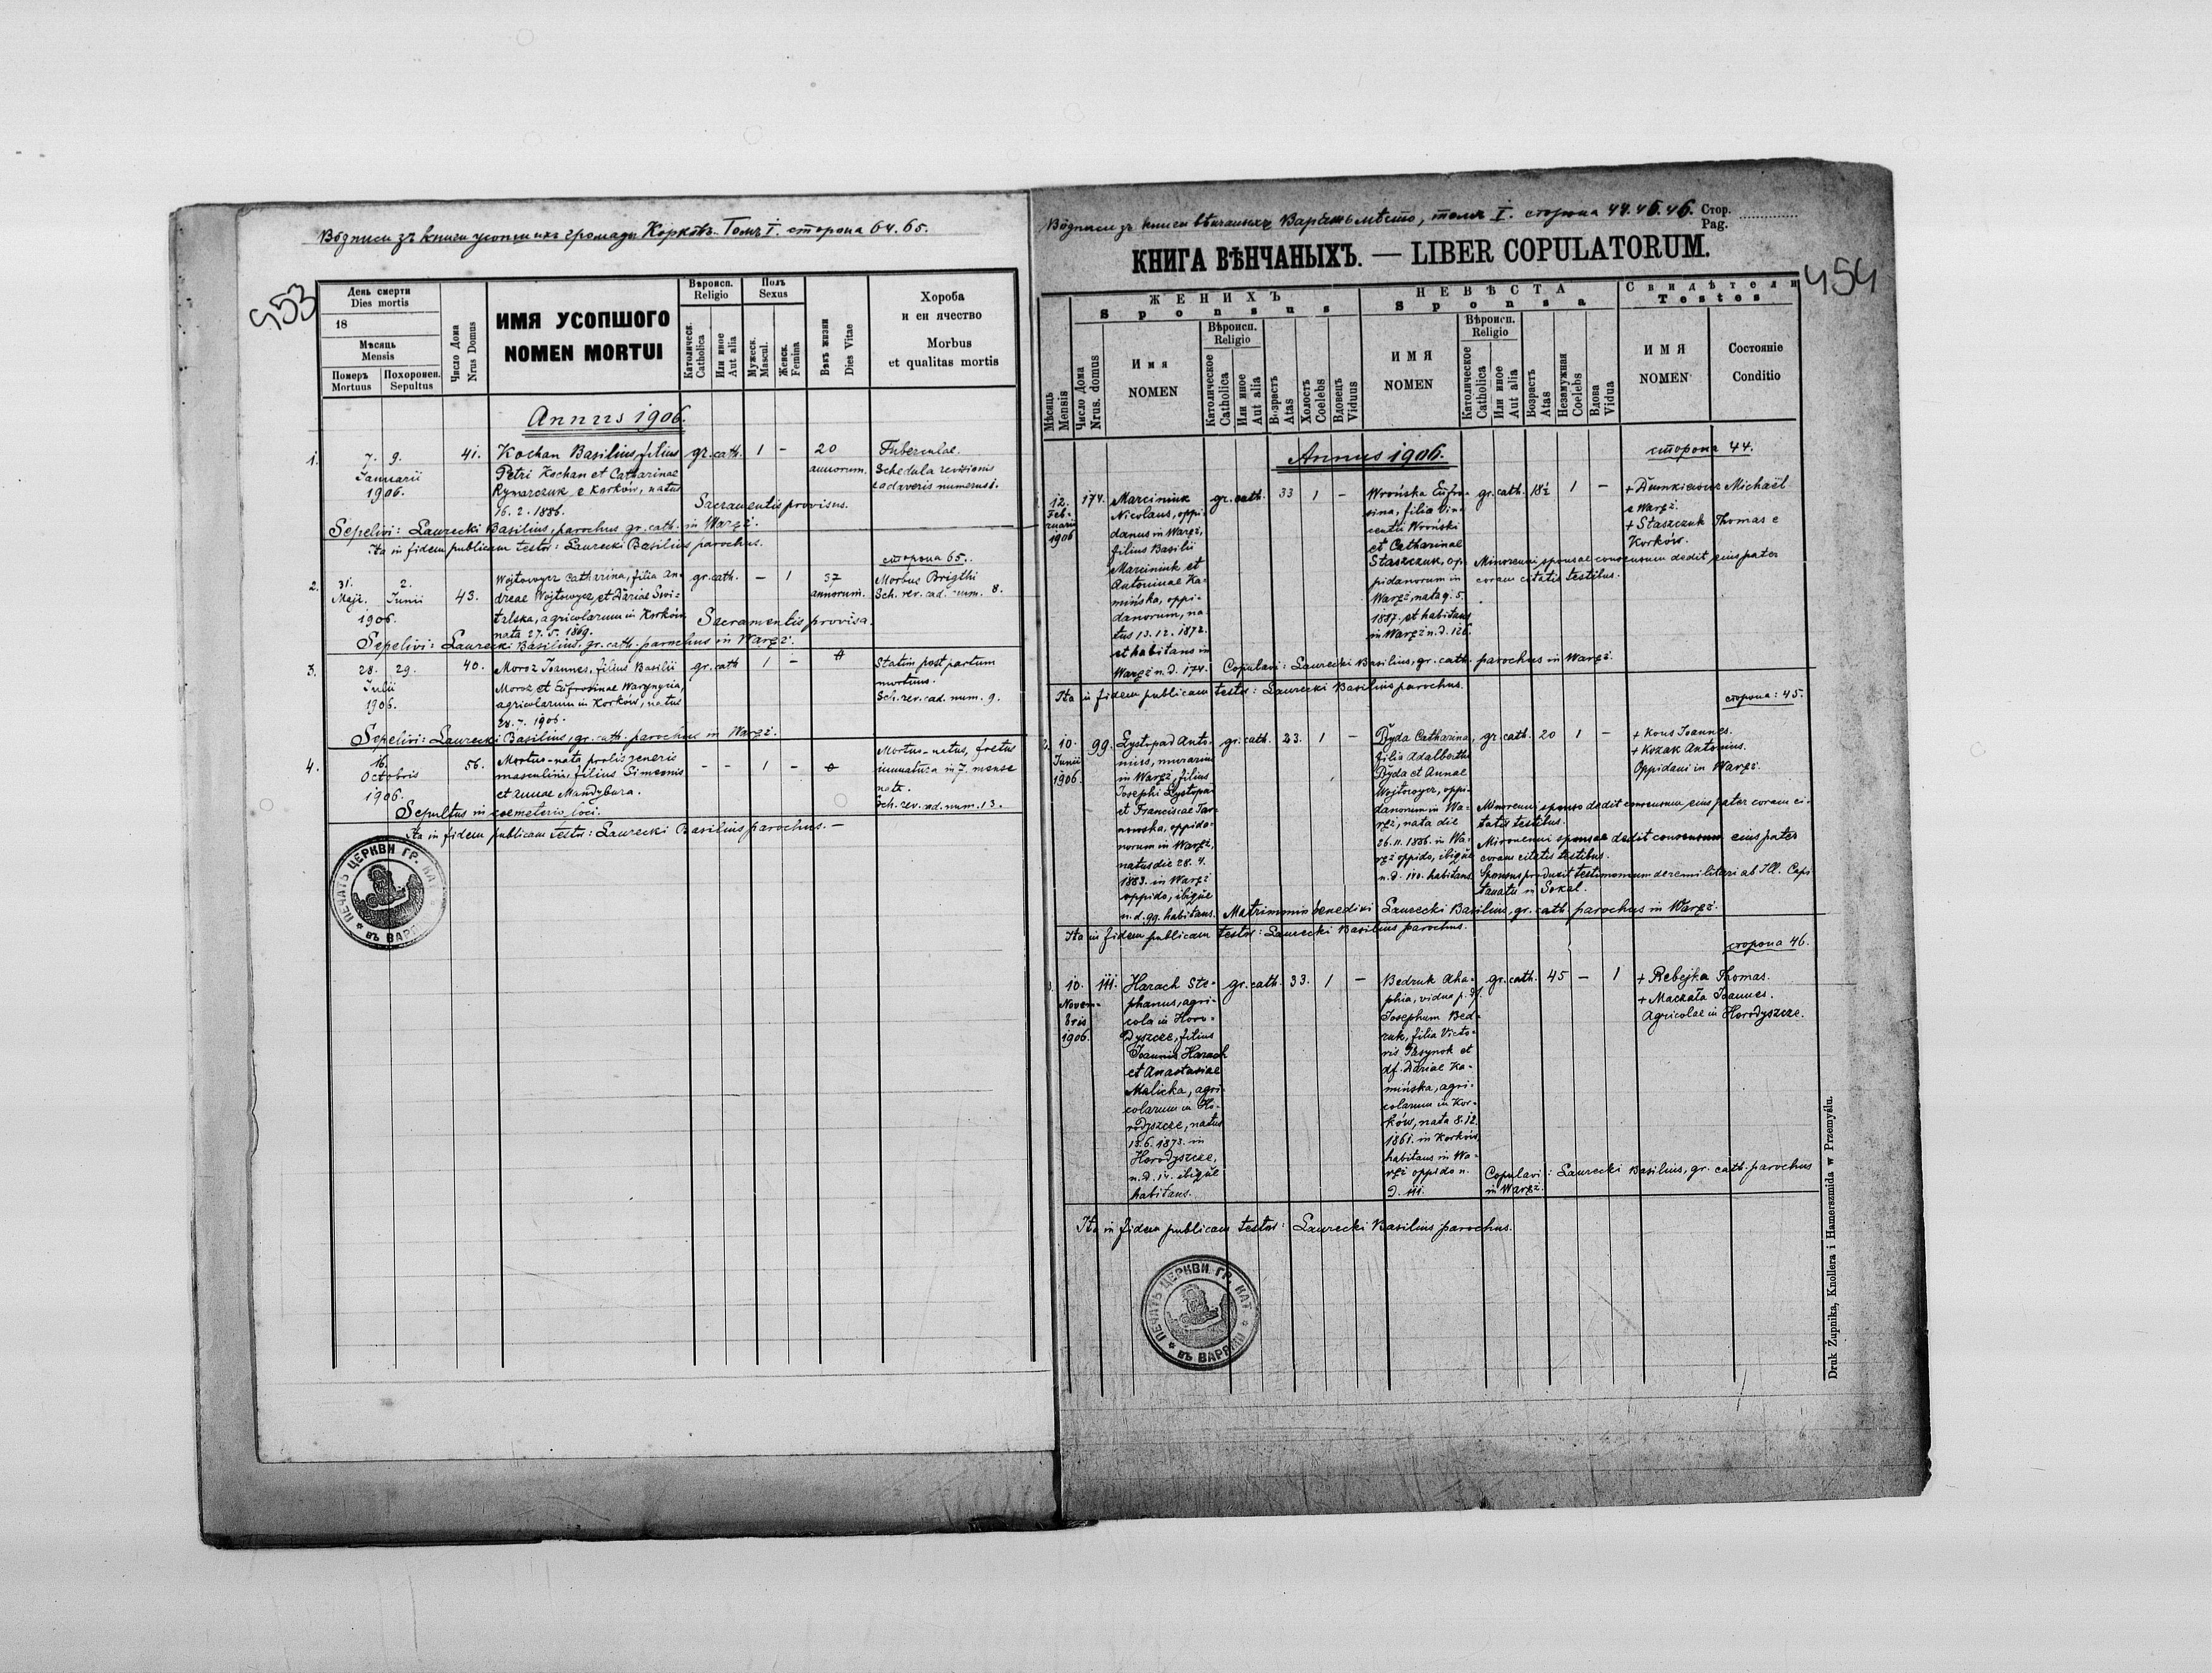 Водписи зъ книги усопшихъ громады Корковъ. Томъ I. сторона 64. 65.
453
День смерти
Dies mortis
18
Мѣсяць
Mensis
Померъ
Mortuus
Похоронен.
Sepultus
Число Дома
Nrus Domus
ИМЯ УСОПШОГО
NOMEN MORTUI
Вѣроисп.
Religio
Католическ.
Catholica
Или иное
Aut alia
Полъ
Sexus
Мужеск.
Mascul.
Женск.
Femina
Вѣкъ жизни
Dies Vitae
Хороба
и еи ячество
Morbus
et qualitas mortis
Annus 1906.
1. 7. 9. 41. Kochan Basilius, filius gr. cath. 1 - 20 Tuberculae.
Januarii Petri Kochan et Catharinae annorum. Schedula revisionis
1906. Rymarczuk e Korków, natus cadaveris numerus 1.
16. 2. 1886. Sacramentis provisus.
Sepelivi: Laurecki Basilius, parochus gr. cath. in Waręż.
Ita in fidem publicam testor: Laurecki Basilius parochus.
сторона 65.
2. 31. 2. 43. Wojtowycz Catharina, filia An- gr. cath. - 1 37 Morbus Brigthi
Maji. Junii dreae Wojtowycz et Dariae Swi- annorum. Sch. rev. cad. num. 8.
1906. talska, agricolarum in Korków
nata 27. 5. 1869. Sacramentis provisa.
Sepelivi: Laurecki Basilius, gr. cath. parochus in Waręż.
3. 28. 29. 40. Moroz Joannes, filius Basilii gr. cath 1 - Statim post partum
Julii Moroz et Eufrosinae Warynycia, mortuus.
1906. agricolarum in Korków, natus Sch. rev. cad. num. 9.
28. 7. 1906.
Sepelivi: Laurecki Basilius, gr. cath. parochus in Waręż.
4. 16. 56. Mortuo-nata prolis generis - - 1 - Mortuo-natus, foetus
Octobris masculini, filius Simeonis immatura in 7. mense
1906. et Annae Mandybura. nata.
Sepultus in coemeterio loci. Sch. rev. cad. num. 13.
Ita in fidem publicam testor: Laurecki Basilius parochus. -
ПЕЧАТЬ ЦЕРКВИ ГР. КАТ.
въ ВАРЯЖИ
Водписи зъ книги вѣнчаныхъ Варяжъ мѣсто, томъ I. сторона 44. 45. 46. Стор.
Pag.
КНИГА ВѢНЧАНЫХЪ. — LIBER COPULATORUM.
454
ЖЕНИХЪ
Sponsus
НЕВѢСТА
Sponsa
Свидѣтели
Testes
Мѣсяць
Mensis
Число Дома
Nrus. domus
Имя
NOMEN
Вѣроисп.
Religio
Католическое
Catholica
Или иное
Aut alia
Возрастъ
Atas
Холостъ
Coelebs
Вдовецъ
Viduus
ИМЯ
NOMEN
Вѣроисп.
Religio
Католическое
Catholica
Или иное
Aut alia
Возрастъ
Atas
Незамужная
Coelebs
Вдова
Vidua
ИМЯ
NOMEN
Состояніе
Conditio
Annus 1906.
сторона 44.
12.
Feb-
ruarii
1906
174.
Marciniuk
Nicolaus, oppi-
danus in Waręż,
filius Basilii
Marciniuk et
Antoninae Ka-
mińska, oppi-
danorum, na-
tus 13. 12. 1872.
et habitans in
Waręż n. d. 174.
gr. cath. 33 1 -
Wrońska Eufro-
sina, filia Vin-
centii Wroński
et Catharinae
Staszczuk, op-
pidanorum in
Waręż, nata 9. 5.
1887. et habitans
in Waręż n. d. 126.
gr. cath. 18½ 1 -
+ Dumkiewicz Michaël
e Waręż.
+ Staszczuk Thomas e
Korków.
Minorenni sponsae consensum dedit ejus pater
coram citatis testibus.
Copulavi: Laurecki Basilius, gr. cath. parochus in Waręż.
Ita in fidem publicam testor: Laurecki Basilius parochus.
сторона: 45.
2. 10.
Junii
1906.
99.
Lystopad Anto-
nius, murarius
in Waręż, filius
Josephi Lystopad
et Franciscae Tar-
nowska, oppida-
norum in Waręż,
natus die 28. 4.
1883. in Waręż
oppido, ibique
n. d. 99. habitans.
gr. cath. 23. 1 -
Byda Catharina,
filia Adalberthi
Byda et Annae
Wojtowycz, oppi-
danorum in Wa-
ręż, nata die
26. 11. 1886. in Wa-
ręż oppido, ibique
n. d. 110. habitans
gr. cath. 20 1 -
+ Kous Joannes.
+ Kozak Antonius.
Oppidani in Waręż.
Minorenni sponso dedit consensum ejus pater coram ci-
tatis testibus.
Minorenni sponsae dedit consensum ejus pater
coram citatis testibus.
Sponsus produxit testimonium de re militari ab Ill. Capi
tanatu in Sokal.
Matrimonio benedixi Laurecki Basilius, gr. cath. parochus in Waręż.
Ita in fidem publicam testor: Laurecki Basilius parochus.
сторона 46.
3. 10.
Novem-
bris
1906.
111.
Harach Ste-
phanus, agri-
cola in Horo-
dyszcze, filius
Joannis Harach
et Anastasiae
Malicka, agri-
colarum in Ho-
rodyszcze, natus
18. 6. 1873. in
Horodyszcze,
n. d. 14. ibique
habitans.
gr. cath. 33. 1 -
Bedruk Aha-
phia, vidua p. df.
Josephum Bed-
ruk, filia Victo-
ris Pasynok et
df. Dariae Ka-
mińska, agri-
colarum in Kor-
ków, nata 8. 12.
1861. in Korków
habitans in Wa-
ręż oppido n.
d. 111.
gr. cath. 45 - 1
+ Rebejka Thomas.
+ Machała Joannes.
Agricolae in Horodyszcze.
Copulavi: Laurecki Basilius, gr. cath. parochus
in Waręż.
Ita in fidem publicam testor: Laurecki Basilius parochus.
ПЕЧАТЬ ЦЕРКВИ ГР. КАТ.
въ ВАРЯЖИ
Druk Żupnika, Knollera i Hamerszmida w Przemyślu.